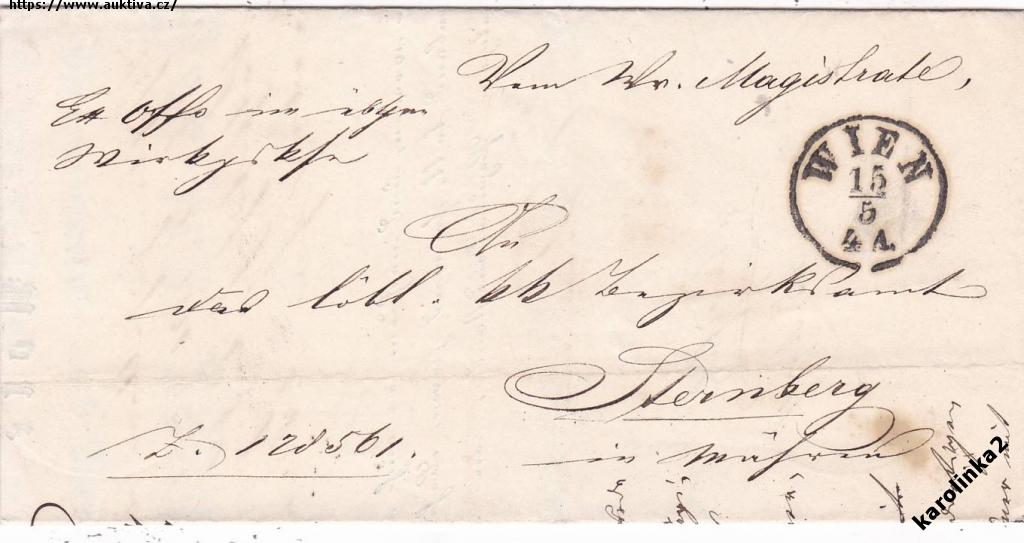 https://www.auktiva.cz/
Vom Wr. Magistrate,
Ex Offo im übtgn
Wirkgskse
WIEN
15
5
4 A.
An
das löbl. kk Bezirksamt
Sternberg
in Mähren
Z. 128561.
karolinka2